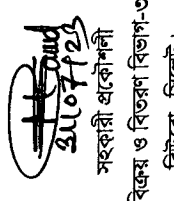 31/07/23
সহকারী প্রকৌশলী
বিক্রয় ও বিতরণ বিভাগ-৩